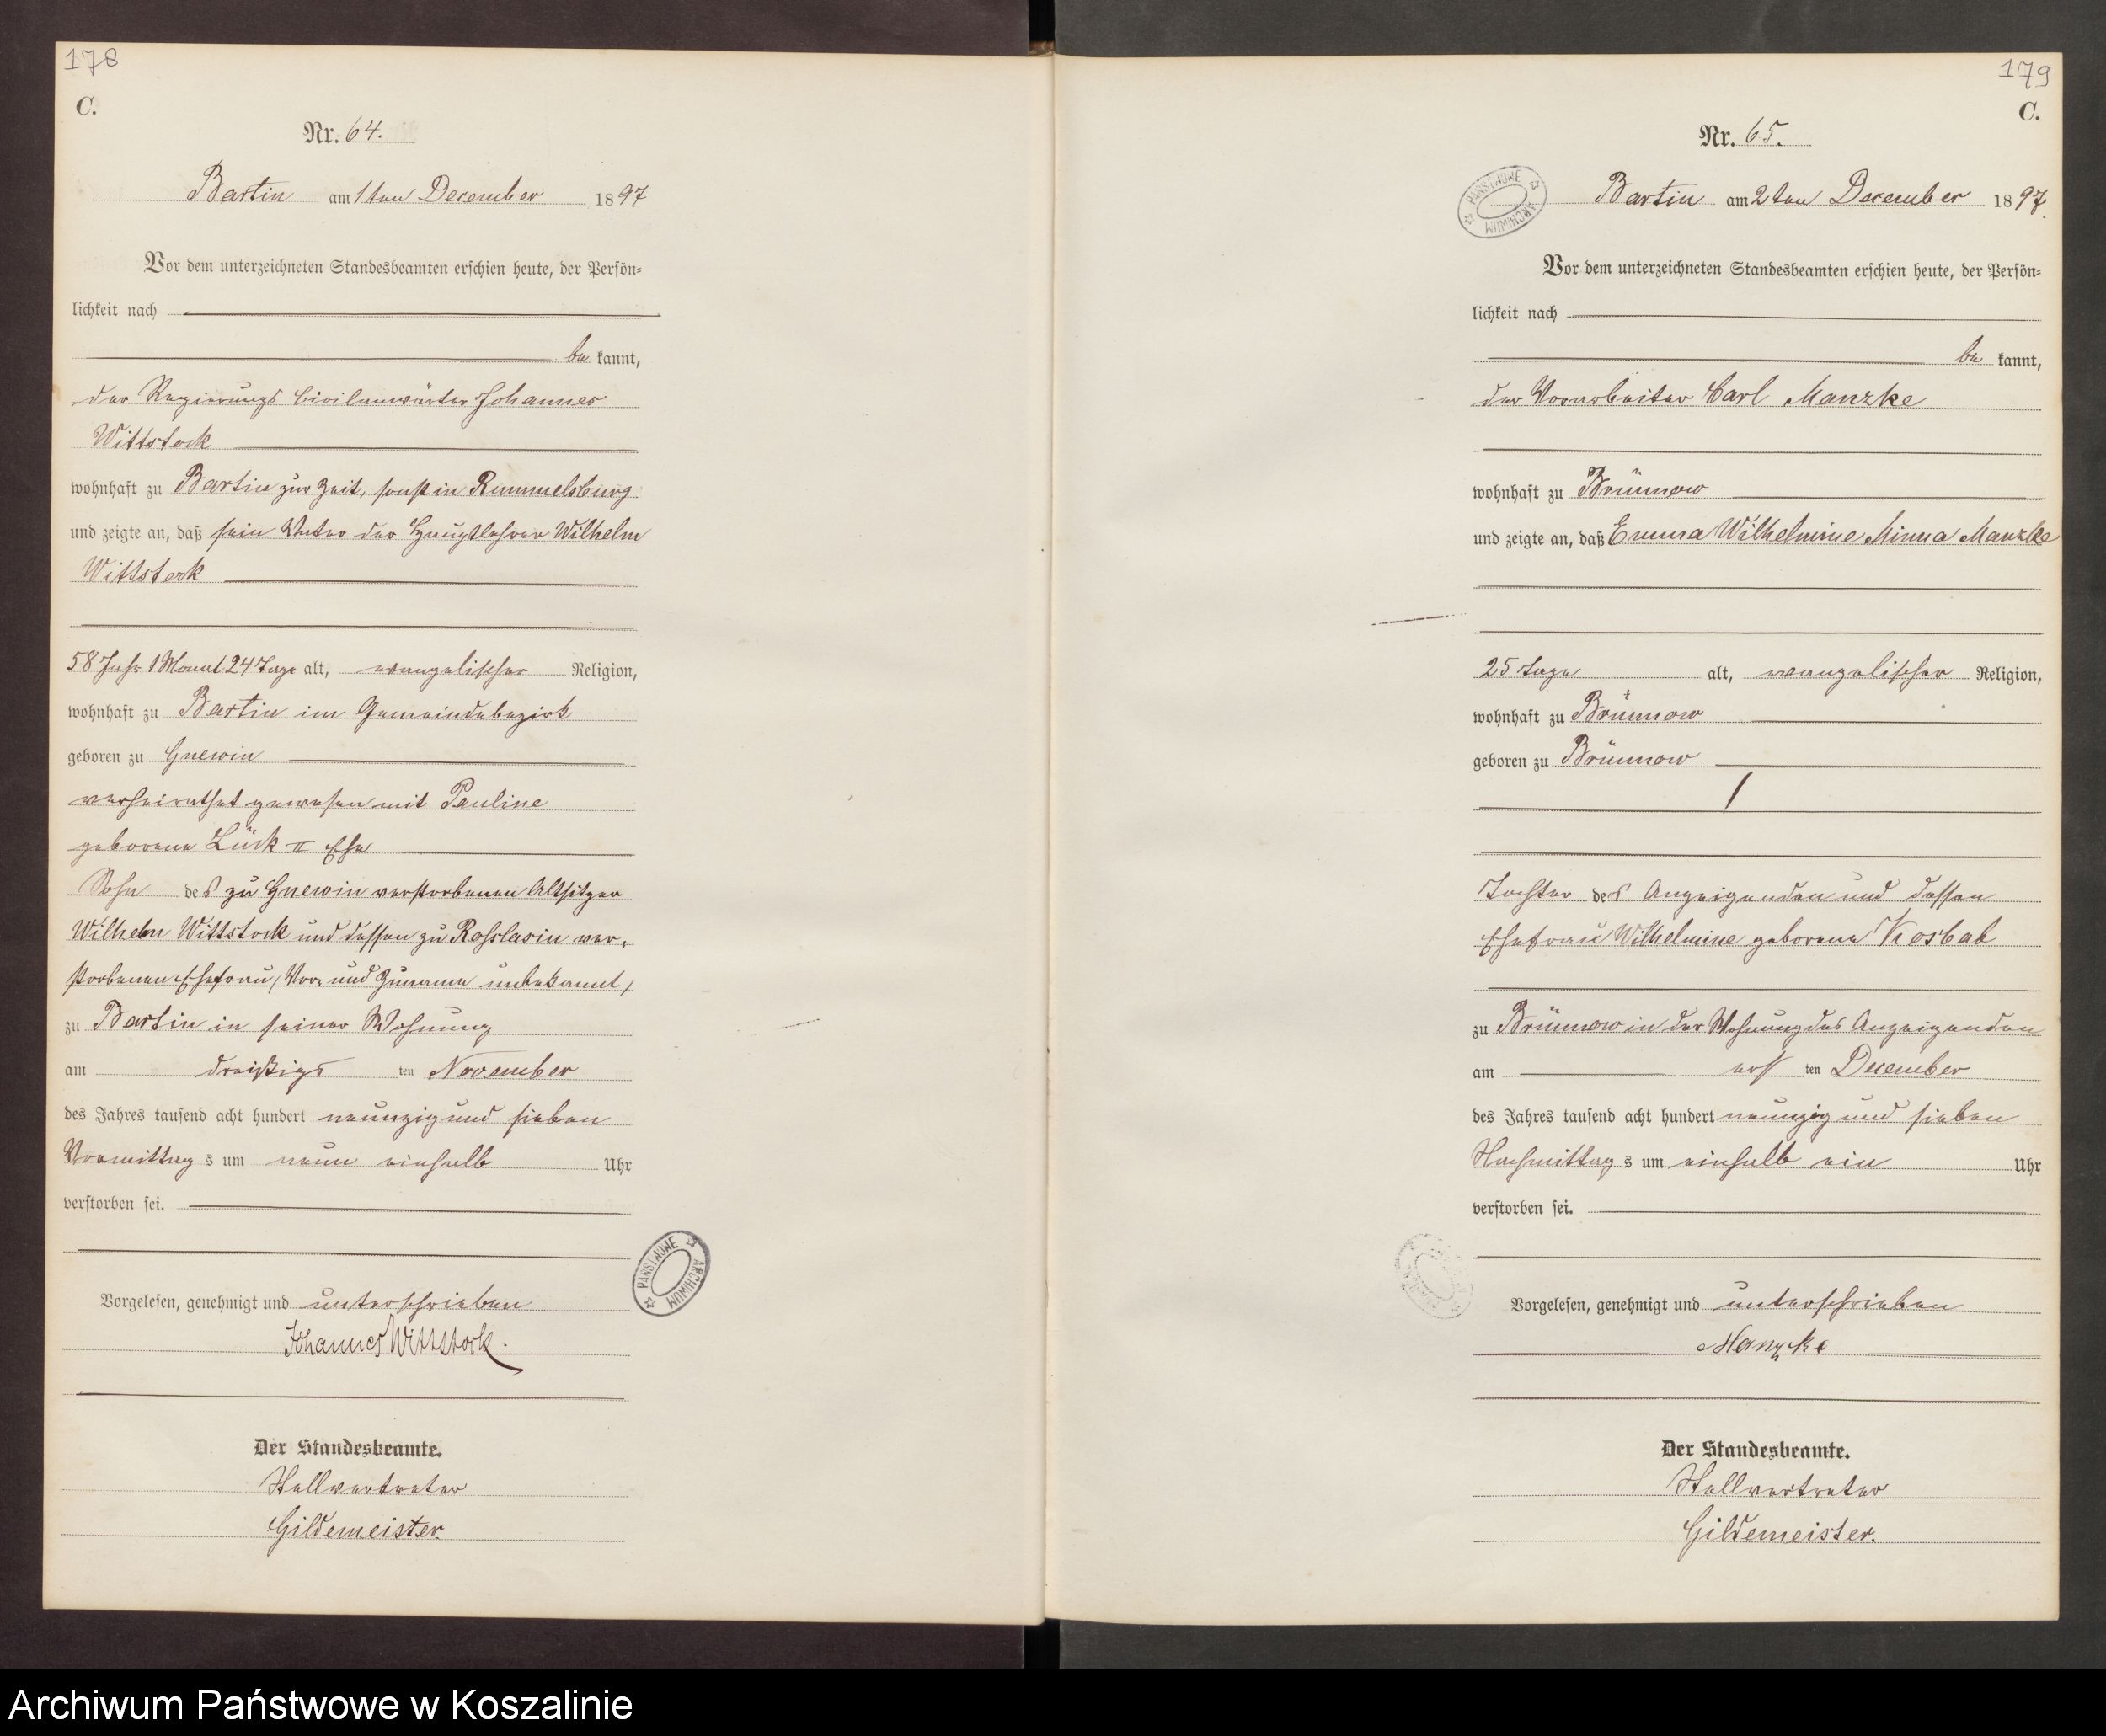 178
C.
Nr. 64.
Bartin am 1ten December 1897
Vor dem unterzeichneten Standesbeamten erschien heute, der Persön-
lichkeit nach
be kannt,
der Regierungs Civilanwärter Johannes
Wittstock
wohnhaft zu Bartin zur Zeit, sonst in Rummelsburg
und zeigte an, daß sein Vater der Hauptlehrer Wilhelm
Wittstock
58 Jahr 1 Monat 24 Tage alt, evangelischer Religion,
wohnhaft zu Bartin im Gemeindebezirk
geboren zu Gnewin
verheirathet gewesen mit Pauline
geborene Lück II Ehe
Sohn des zu Gnewin verstorbenen Altsitzer
Wilhelm Wittstock und dessen zu Roslasin ver-
storbenen Ehefrau, (Vor- und Zuname unbekannt)
zu Bartin in seiner Wohnung
am dreißigs ten November
des Jahres tausend acht hundert neunzig und sieben
Vormittag s um neun einhalb Uhr
verstorben sei.
Vorgelesen, genehmigt und unterschrieben
Johannes Wittstock.
Der Standesbeamte.
Stellvertreter
Gildemeister.
PAŃSTWOWE ARCHIWUM
179
C.
Nr. 65.
PAŃSTWOWE ARCHIWUM
Bartin am 2ten December 1897.
Vor dem unterzeichneten Standesbeamten erschien heute, der Persön-
lichkeit nach
be kannt,
der Vorarbeiter Carl Manzke
wohnhaft zu Brünnow
und zeigte an, daß Emma Wilhelmine Minna Manzke
25 Tage alt, evangelischer Religion,
wohnhaft zu Brünnow
geboren zu Brünnow
Tochter des Anzeigenden und dessen
Ehefrau Wilhelmine geborene Kosbab
zu Brünnow in der Wohnung des Anzeigenden
am ers ten December
des Jahres tausend acht hundert neunzig und sieben
Nachmittag s um einhalb ein Uhr
verstorben sei.
Vorgelesen, genehmigt und unterschrieben
Manzke
Der Standesbeamte.
Stellvertreter
Gildemeister.
Archiwum Państwowe w Koszalinie